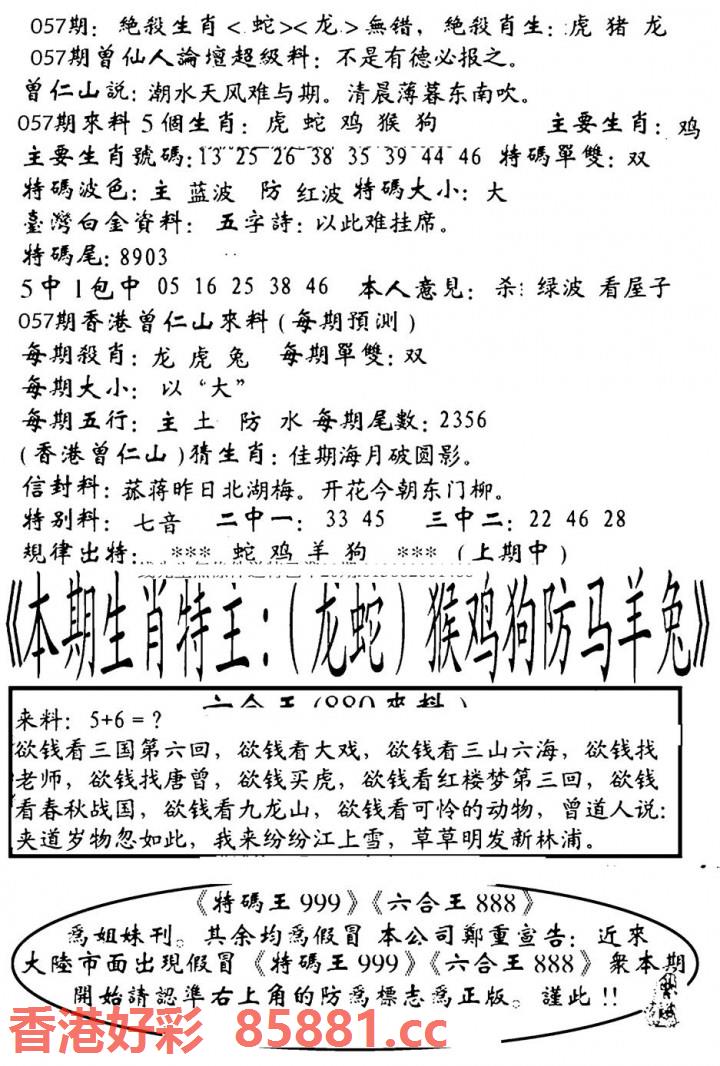 057期：絶殺生肖<蛇><龙>無错，絶殺肖生：虎 猪 龙
057期曾仙人論壇超級料：不是有德必报之。
曾仁山説：潮水天风难与期。清晨薄暮东南吹。
057期來料5個生肖：虎 蛇 鸡 猴 狗 主要生肖：鸡
主要生肖號碼：13 25 26 38 35 39 44 46 特碼單雙：双
特碼波色：主 蓝波 防 红波 特碼大小：大
臺灣白金資料：五字詩：以此难挂席。
特碼尾：8903
5中1包中 05 16 25 38 46 本人意見：杀：绿波 看屋子
057期香港曾仁山來料(每期預测)
每期殺肖：龙 虎 兔 每期單雙：双
每期大小：以“大”
每期五行：主 土 防 水 每期尾數：2356
(香港曾仁山)猜生肖：佳期海月破圆影。
信封料：菰蒋昨日北湖梅。开花今朝东门柳。
特别料：七音 二中一：33 45 三中二：22 46 28
規律出特：*** 蛇 鸡 羊 狗 ***(上期中)
《本期生肖特主：(龙蛇)猴鸡狗防马羊兔》
来料：5+6=？
欲钱看三国第六回，欲钱看大戏，欲钱看三山六海，欲钱找
老师，欲钱找唐曾，欲钱买虎，欲钱看红楼梦第三回，欲钱
看春秋战国，欲钱看九龙山，欲钱看可怜的动物，曾道人说：
夹道岁物忽如此，我来纷纷江上雪，草草明发新林浦。
《特碼王999》《六合王888》
爲姐妹刊。其余均爲假冒 本公司鄭重宣告：近來
大陸市面出現假冒《特碼王999》《六合王888》衆本期
開始請認準右上角的防爲標志爲正版。謹此!!
香港好彩 85881.cc